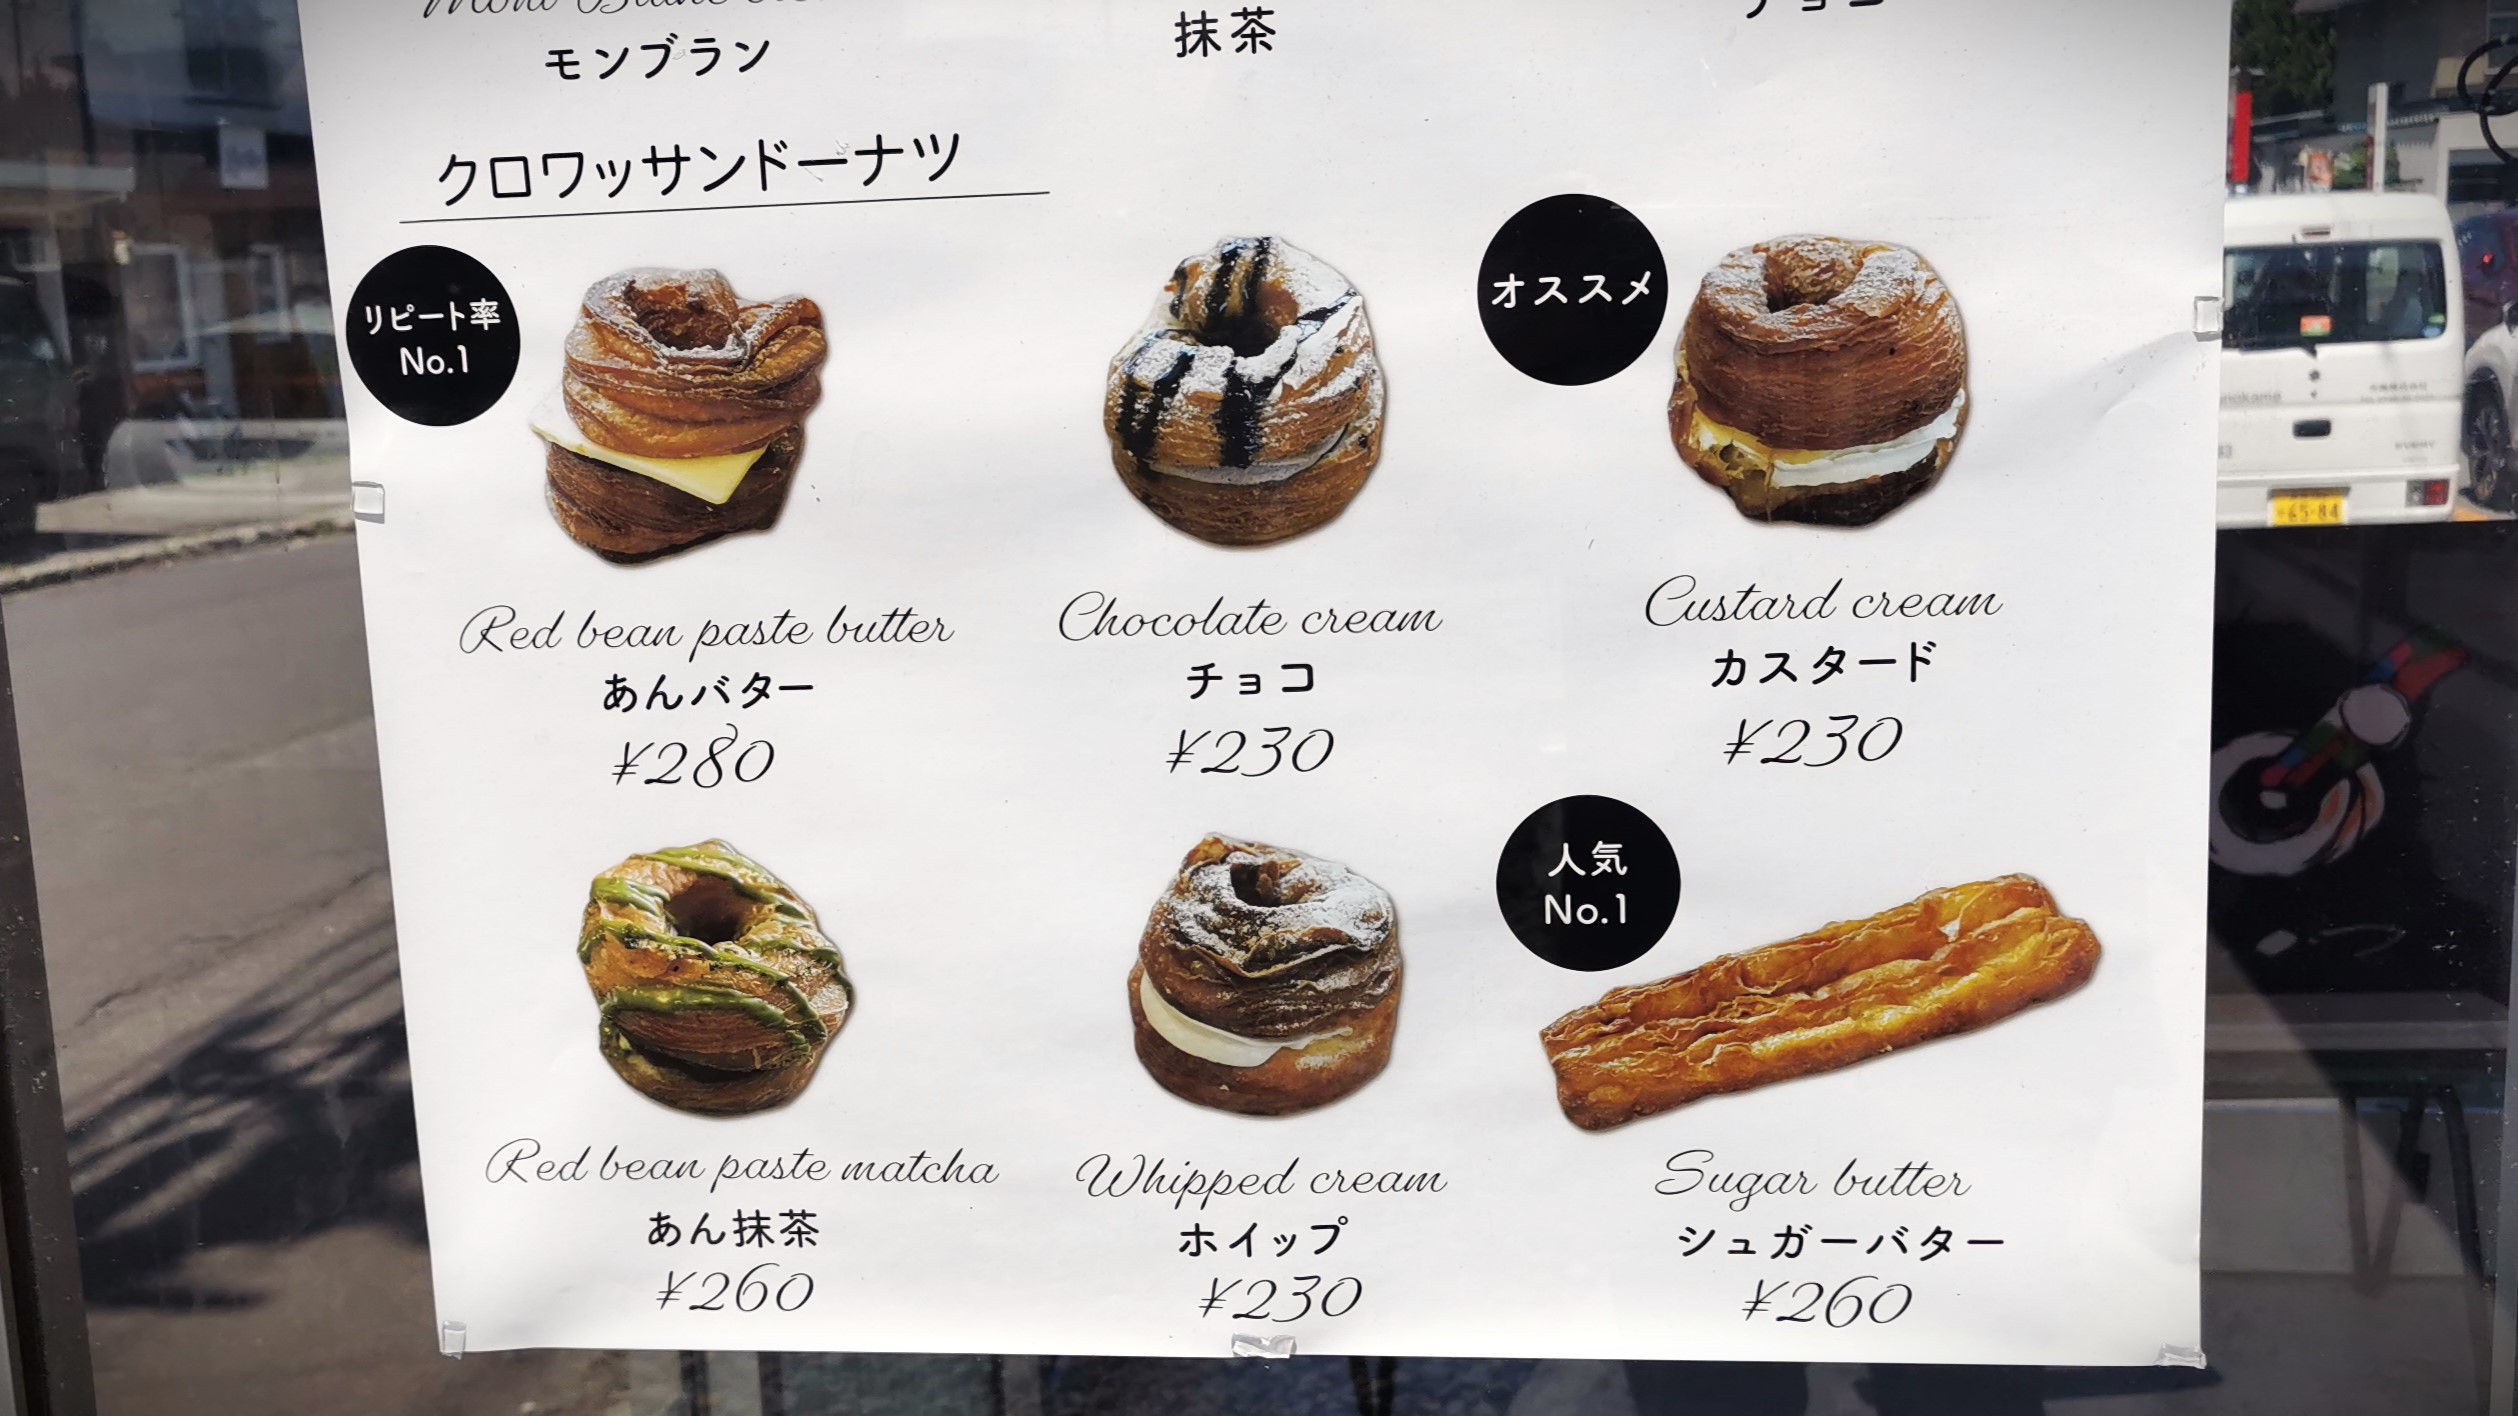 Mont Blanc
モンブラン
抹茶
チョコ
クロワッサンドーナツ
リピート率
No.1
オススメ
Red bean paste butter
あんバター
¥280
Chocolate cream
チョコ
¥230
Custard cream
カスタード
¥230
人気
No.1
Red bean paste matcha
あん抹茶
¥260
Whipped cream
ホイップ
¥230
Sugar butter
シュガーバター
¥260